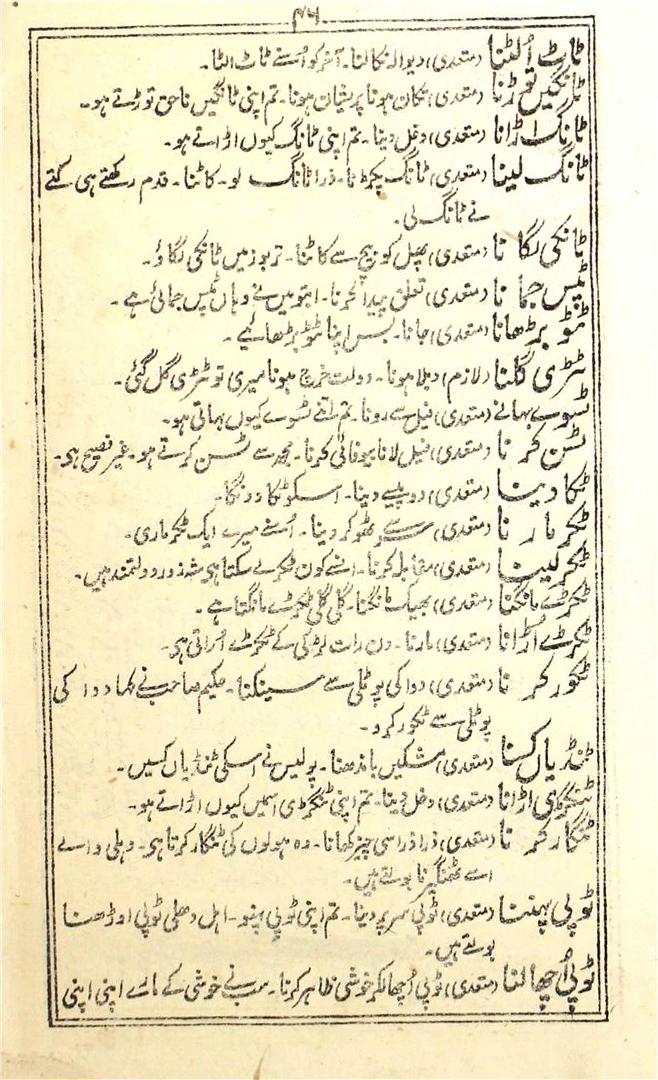 ۳۶
ٹاٹ اُلٹنا (متعدی) دیوالہ نکالنا۔ آخرکو اُسنے ٹاٹ الٹا۔
ٹانگیں توڑنا (متعدی) تکان ہونا پریشان ہونا۔ تم اپنی ٹانگیں ناحق توڑتے ہو۔
ٹانگ اڑانا (متعدی) دخل دینا۔ تم اپنی ٹانگ کیوں اڑاتے ہو۔
ٹانگ لینا (متعدی) ٹانگ پکڑنا۔ ذرا ٹانگ لو۔ کاٹنا۔ قدم رکھتے ہی کتے
نے ٹانگ لی۔
ٹانکی لگانا (متعدی) پھل کو بیچ سے کاٹنا۔ تربوز میں ٹانکی لگاؤ۔
ٹپس جمانا (متعدی) تعلق پیدا کرنا۔ ابتو میں نے وہاں ٹپس جمائی ہے۔
ٹٹو بڑھانا (متعدی) جانا۔ بس اپنا ٹٹو بڑھائیے۔
ٹٹری گلنا (لازم) دبلا ہونا۔ دولت خرچ ہونا میری تو ٹٹری گل گئی۔
ٹسوے بہانے (متعدی) فیل سے رونا۔ تم اتنے ٹسوے کیوں بہاتی ہو۔
ٹسن کرنا (متعدی) فیل لانا بیوفائی کرنا۔ مجھ سے ٹسن کرتے ہو۔ غیر فصیح ہی۔
ٹکا دینا (متعدی) دو پیسے دینا۔ اسکو ٹکا دونگا۔
ٹکر مارنا (متعدی) سر سے ٹھوکر دینا۔ اُسنے میرے ایک ٹکر ماری۔
ٹکر لینا (متعدی) مقابلہ کرنا۔ انسے کون ٹکر لے سکتا ہی شہ زور و دولتمند ہیں۔
ٹکڑے مانگنا (متعدی) بھیک مانگنا۔ گلی گلی ٹکڑے مانگتا ہے۔
ٹکڑے اُڑانا (متعدی) مارنا۔ دن رات لڑکی کے ٹکڑے اُڑاتی ہی۔
ٹکور کرنا (متعدی) دوا کی پوٹلی سے سینکنا۔ حکیم صاحب نے کہا دوا کی
پوٹلی سے ٹکور کرو۔
ٹنڈیاں کسنا (متعدی) مشکیں باندھنا۔ پولیس نے اسکی ٹنڈیاں کسیں۔
ٹنگڑی اڑانا (متعدی) دخل دینا۔ تم اپنی ٹنگڑی اسمیں کیوں اڑاتے ہو۔
ٹنگار کرنا (متعدی) ذرا ذرا سی چیز کھانا۔ وہ ہولوں کی ٹنگار کرتا ہی۔ دہلی والے
اسے ٹھنگیرنا بولتے ہیں۔
ٹوپی پہننا (متعدی) ٹوپی سر پر دینا۔ تم اپنی ٹوپی پہنو۔ اہل دھلی ٹوپی اوڑھنا
بولتے ہیں۔
ٹوپی اُچھالنا (متعدی) ٹوپی اُچھالکر خوشی ظاہر کرنا۔ سب نے خوشی کے مارے اپنی اپنی